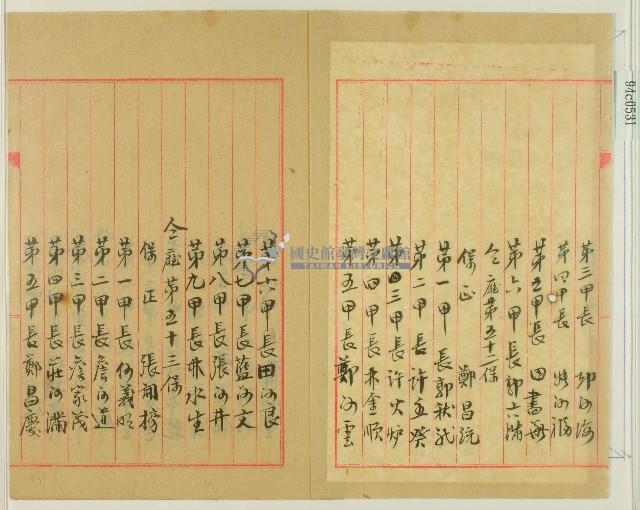 第三甲長
第四甲長
第五甲長 田書
第六甲長
仝庄第五十二保
保正 鄭昌
第一甲長郭秋
第二甲長許丑癸
第三甲長許火炉
第四甲長林金順
第五甲長鄭河雲
第六甲長田河良
第七甲長藍河文
第八甲長張河井
第九甲長林水生
仝庄第五十三保
保正 張開榜
第一甲長何義順
第二甲長詹河道
第三甲長詹家茂
第四甲長莊河滿
第五甲長鄭昌慶
國史館臺灣文獻館
TAIWAN HISTORICA
94c0531